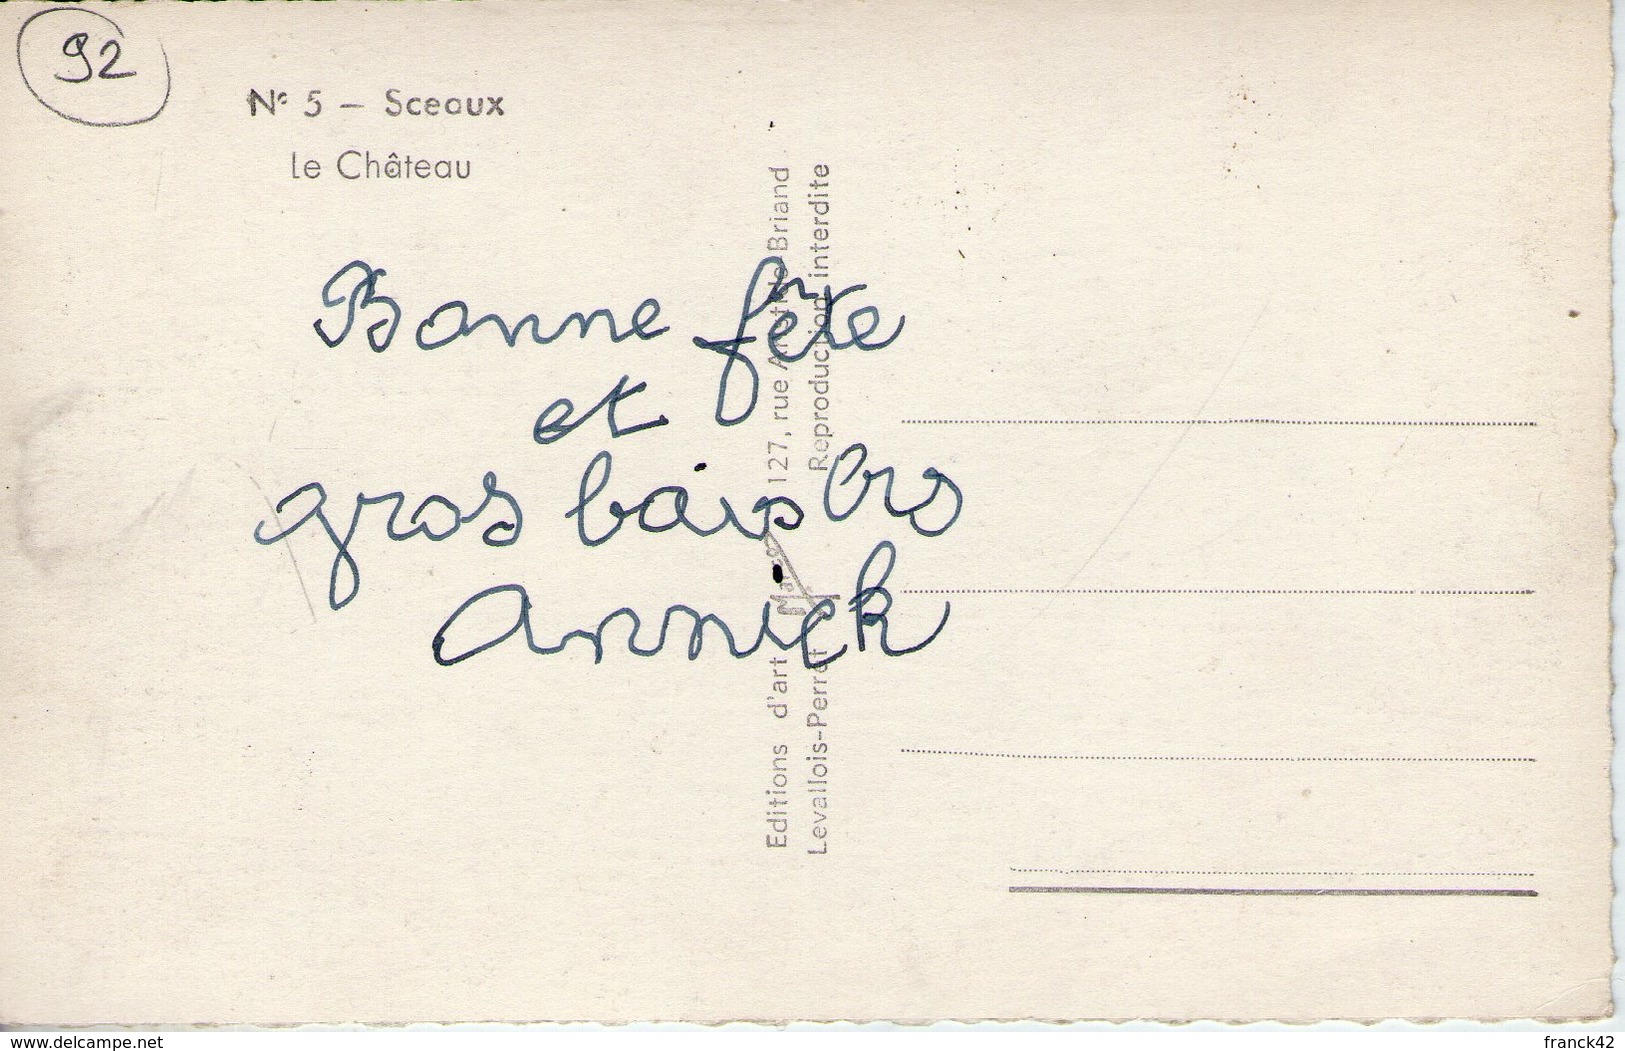 92
N° 5 – Sceaux
Le Château
Bonne fête
et
gros bais
Annick
Editions d'art 127, rue Aristide Briand
Levallois-Perret Reproduction interdite
www.delcampe.net
franck42